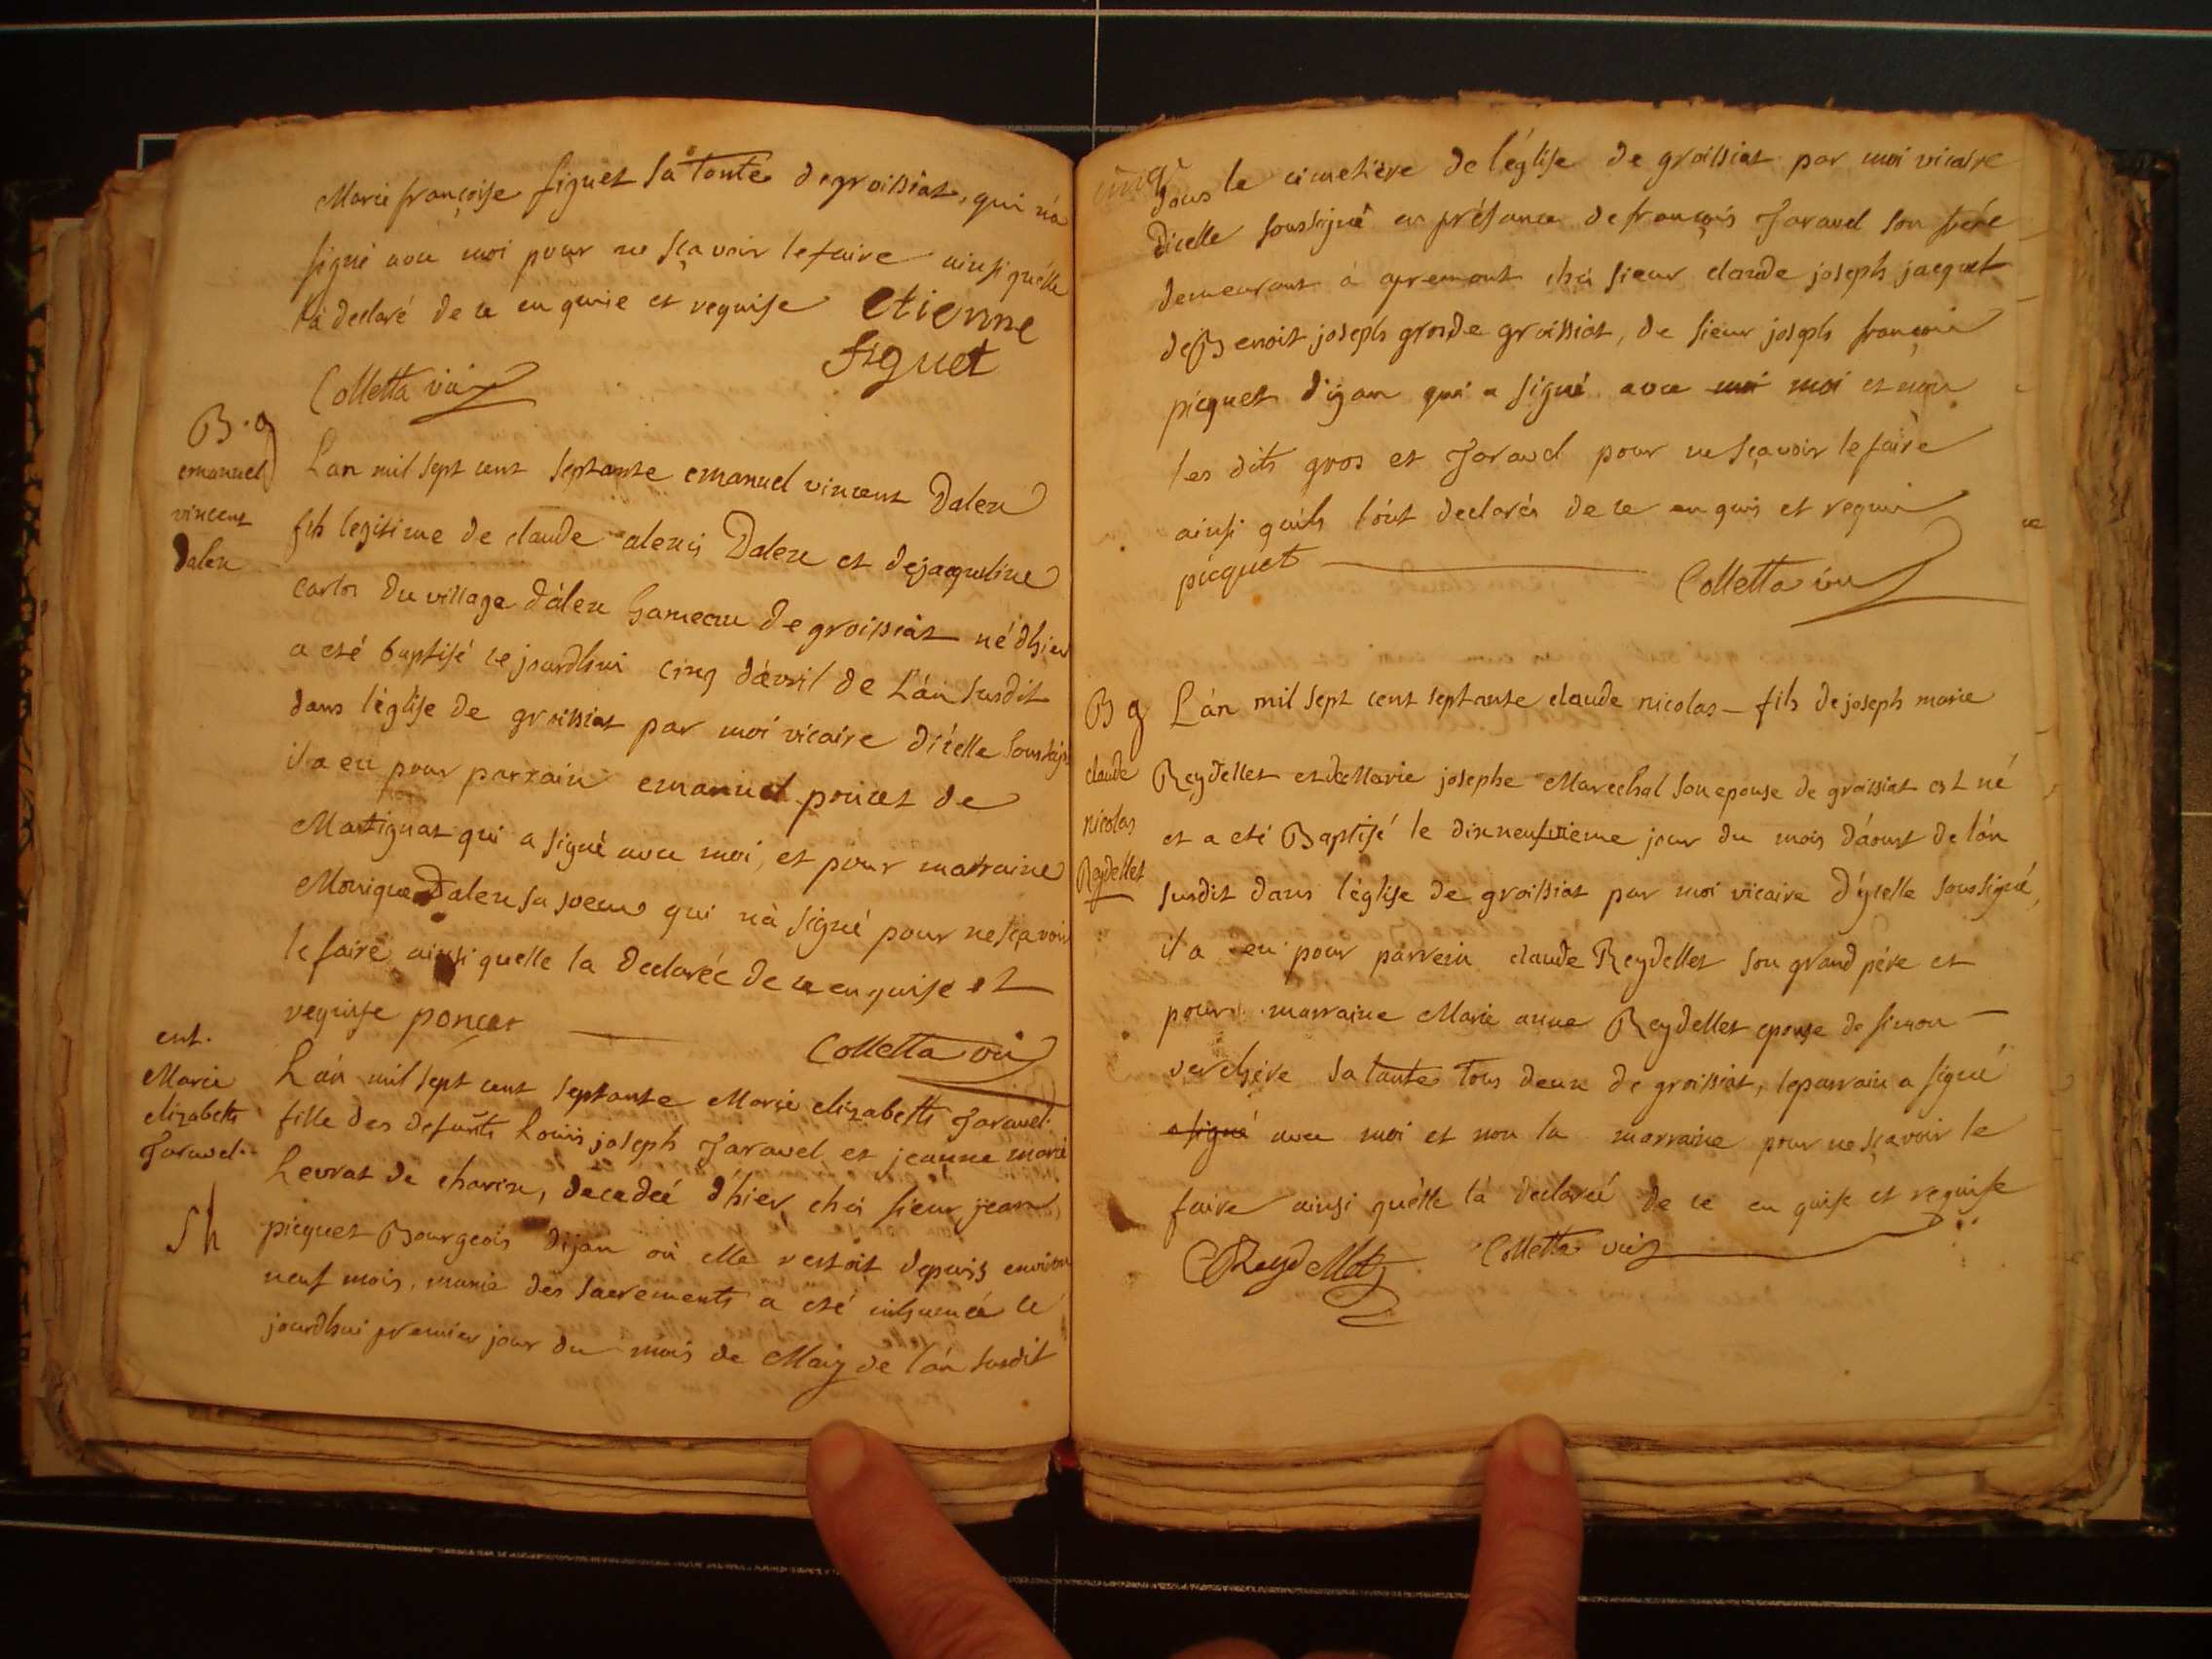 Marie françoise figuet sa tante degroissiat, qui n'a
signé avec moi pour ne sçavoir lefaire ainsi quélle
l'a declaré de ce enquise et requise etienne
figuet
Colletta vic
B. g
emanuel
vincent
Dalex
Lan mil sept cent septante emanuel vincent Dalex
fils legitime de claude alexis Dalex et dejacqueline
carlos du village d'álex hameau de groissiat né dhier
a eté baptisé ce jourdhui cinq d'avril de L'án susdit
dans l'église de groissiat par moi vicaire d'icelle soussigé
il a eu pour parrain emanuel poncet de
Martignat qui a signé avec moi, et pour matraine
Monique Dalex sa soeur qui n'a signé pour nesçavoir
lefaire ainsi quelle la declarée de ce enquise et
requise poncet
Colletta vic
ent.
Marie
elizabeth
Jaravel.
Sh
L'án mil sept cent septante Marie elizabeth Jaravel.
fille des defunts Louis joseph Jaravel et jeanne marie
Levrat de charix, decedeé d'hier chés sieur jean
picquet Bourgeois dijan où elle restoit depuis environ
neuf mois, munie des sacrements a eté inhumeé ce
jourdhui premier jour du mois de May de l'án susdit
dans le cimetière de l'église de groissiat par moi vicaire
d'icelle soussigné en présance defrançois Jaravel son frére
demeurant à apremont chés sieur claude joseph jacquet
deBenoit joseph grosde groissiat, de sieur joseph françois
picquet d'ijan qui a signé avec moi moi et non
les dits gros et Jaravel pour ne sçavoir lefaire
ainsi quils l'ont declarés de ce enquis et requis
picquet Colletta vic
B g
claude
nicolas
Reydellet
L'án mil sept cent septante claude nicolas – fils dejoseph marie
Reydellet etdeMarie josephe Marechal sonepouse de groissiat est né
et a eté Baptisé le dixneufvieme jour du mois d'áoust de l'án
susdit dans l'église de groissiat par moi vicaire d'ycelle soussigné,
il a eu pour parrein claude Reydellet son grand pére et
pour marraine Marie anne Reydellet epouse de simon –
verchére sa tante tous deux de groissiat, leparrain a signé
a signé avec moi et non la marraine pour nesçavoir le
faire ainsi quélle l'a declareé de ce enquise et requise
CReydellet Colletta vic